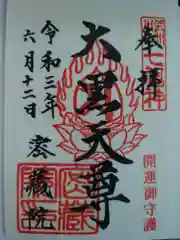 奉拝
大黒天尊
開運御守護
令和三年
六月十二日
密蔵院